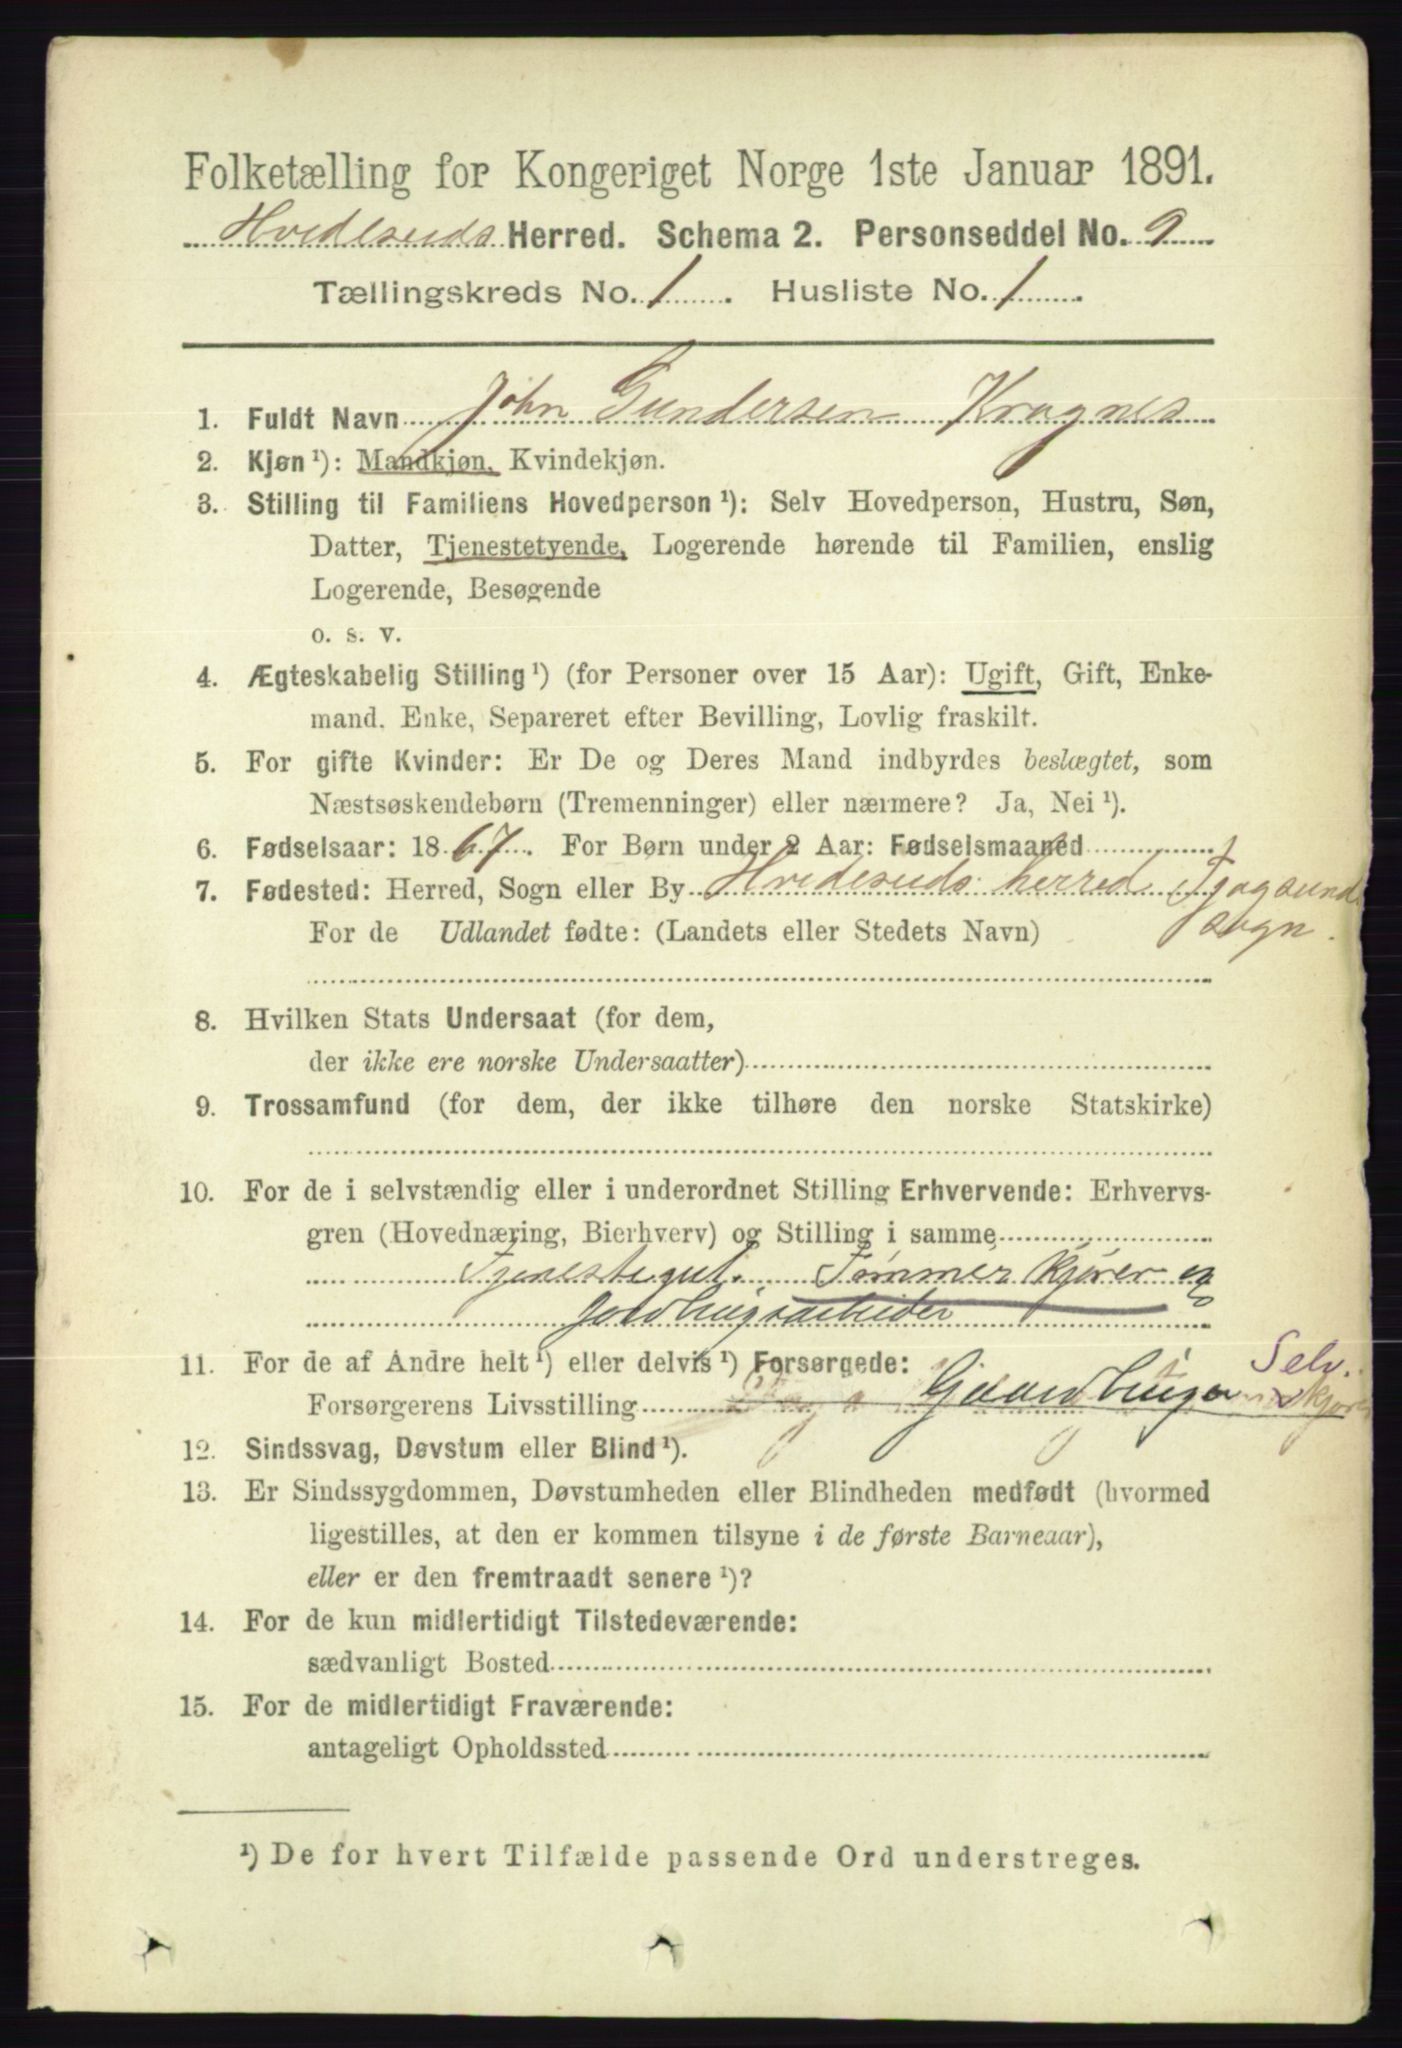 Folketælling for Kongeriget Norge 1ste Januar 1891.
Hvideseids Herred. Schema 2. Personseddel No. 9
Tællingskreds No. 1. Husliste No. 1.
1. Fuldt Navn John Gundersen Kragnes
2. Kjøn ¹): Mandkjøn, Kvindekjøn.
3. Stilling til Familiens Hovedperson ¹): Selv Hovedperson, Hustru, Søn,
Datter, Tjenestetyende, Logerende hørende til Familien, enslig
Logerende, Besøgende
o. s. v.
4. Ægteskabelig Stilling ¹) (for Personer over 15 Aar): Ugift, Gift, Enke-
mand, Enke, Separeret efter Bevilling, Lovlig fraskilt.
5. For gifte Kvinder: Er De og Deres Mand indbyrdes beslægtet, som
Næstsøskendebørn (Tremenninger) eller nærmere? Ja, Nei ¹).
6. Fødselsaar: 1867. For Børn under 2 Aar: Fødselsmaaned
7. Fødested: Herred, Sogn eller By Hvideseids herred
sogn.
For de Udlandet fødte: (Landets eller Stedets Navn)
8. Hvilken Stats Undersaat (for dem,
der ikke ere norske Undersaatter)
9. Trossamfund (for dem, der ikke tilhøre den norske Statskirke)
10. For de i selvstændig eller i underordnet Stilling Erhvervende: Erhvervs-
gren (Hovednæring, Bierhverv) og Stilling i samme
Tjenestegut. Tømmerkjører og
Jordbrugsarbeider
11. For de af Andre helt ¹) eller delvis ¹) Forsørgede:
Selv.
Forsørgerens Livsstilling Gaardbruger
12. Sindssvag, Døvstum eller Blind ¹).
13. Er Sindssygdommen, Døvstumheden eller Blindheden medfødt (hvormed
ligestilles, at den er kommen tilsyne i de første Barneaar),
eller er den fremtraadt senere ¹)?
14. For de kun midlertidigt Tilstedeværende:
sædvanligt Bosted
15. For de midlertidigt Fraværende:
antageligt Opholdssted
¹) De for hvert Tilfælde passende Ord understreges.